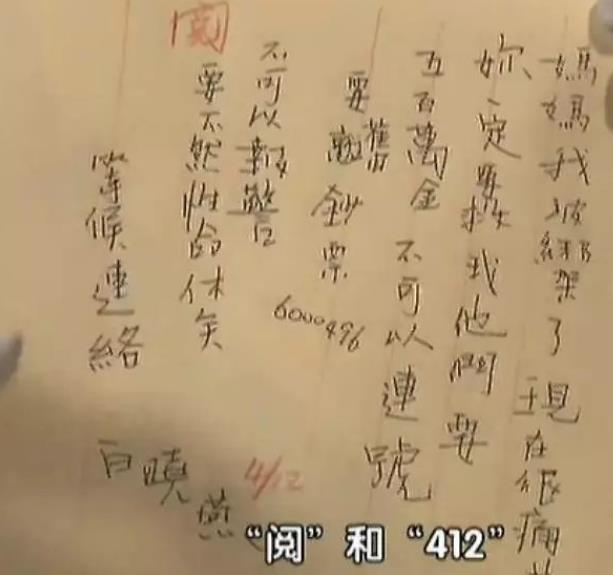 媽媽我被綁架了現在很痛
妳一定要救我他們要
五百萬金不可以連號
要舊鈔票
6000496
不可以報警
要不然性命休矣
等候連絡
白曉燕
閱
4/12
“阅”和“412”